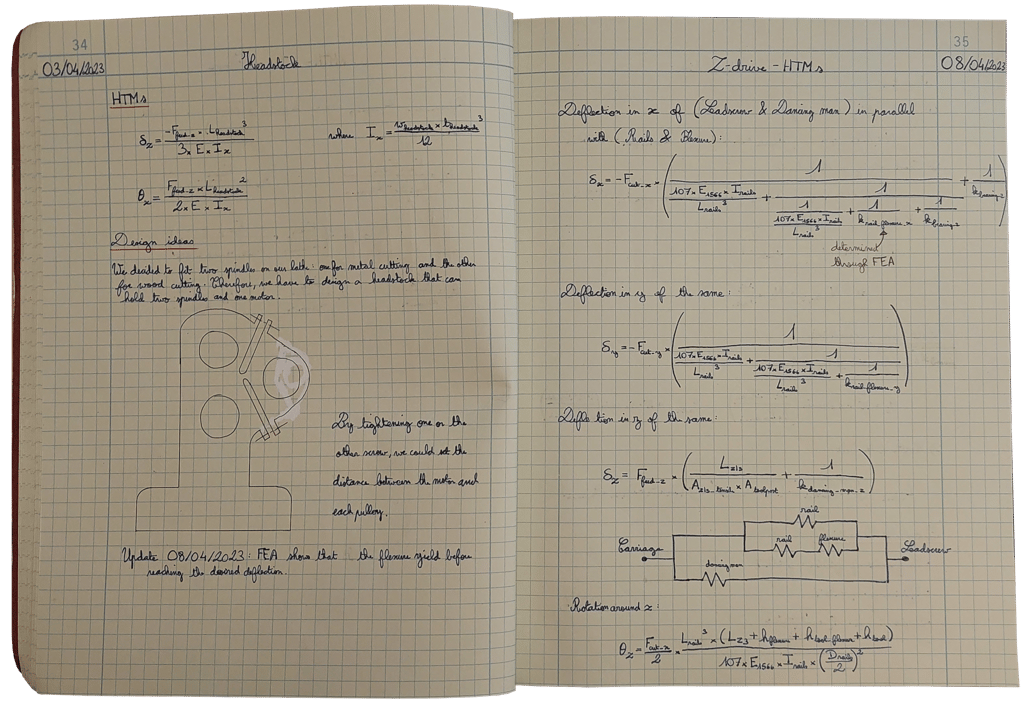 34
03/04/2023
Headstock
HTMs
δz = -F_feed-z · L_headstock³ / 3 × E × I_x where I_x = w_headstock × t_headstock³ / 12
θx = F_feed-z × L_headstock² / 2 × E × I_x
Design ideas
We decided to fit two spindles on our lathe: one for metal cutting and the other
for wood cutting. Therefore, we have to design a headstock that can
hold two spindles and one motor.
By tightening one or the
other screw, we could set the
distance between the motor and
each pulley.
Update 08/04/2023: FEA shows that the flexure yield before
reaching the desired deflection.
35
08/04/2023
Z-drive - HTMs
Deflection in x of (Leadscrew & Dancing man) in parallel
with (Rails & Flexure):
δx = -F_cut-x × (1 / (107 × E_1566 × I_rails / L_rails³ + 1 / (1 / (107 × E_1566 × I_rail / L_rails³) + 1 / k_rail flexure-x + 1 / k_bearing-2)) + 1 / k_bearing-2)
determined
through FEA
Deflection in y of the same:
δy = -F_cut-y × (1 / (107 × E_1566 × I_rails / L_rails³ + 1 / (107 × E_1566 × I_rails / L_rails³ + 1 / k_rail flexure-y)))
Deflection in z of the same:
δz = F_feed-z × (L_zls / A_zls-tensile × A_toolpost + 1 / k_dancing-man-z)
rail
Carriage
rail
flexure
Leadscrew
dancing man
Rotation around x:
θz = F_cut-x / 2 × L_rails³ × (L_z3 + h_flexure + h_tool flexure + h_tool) / 107 × E_1566 × I_rails × (D_rails / 2)²